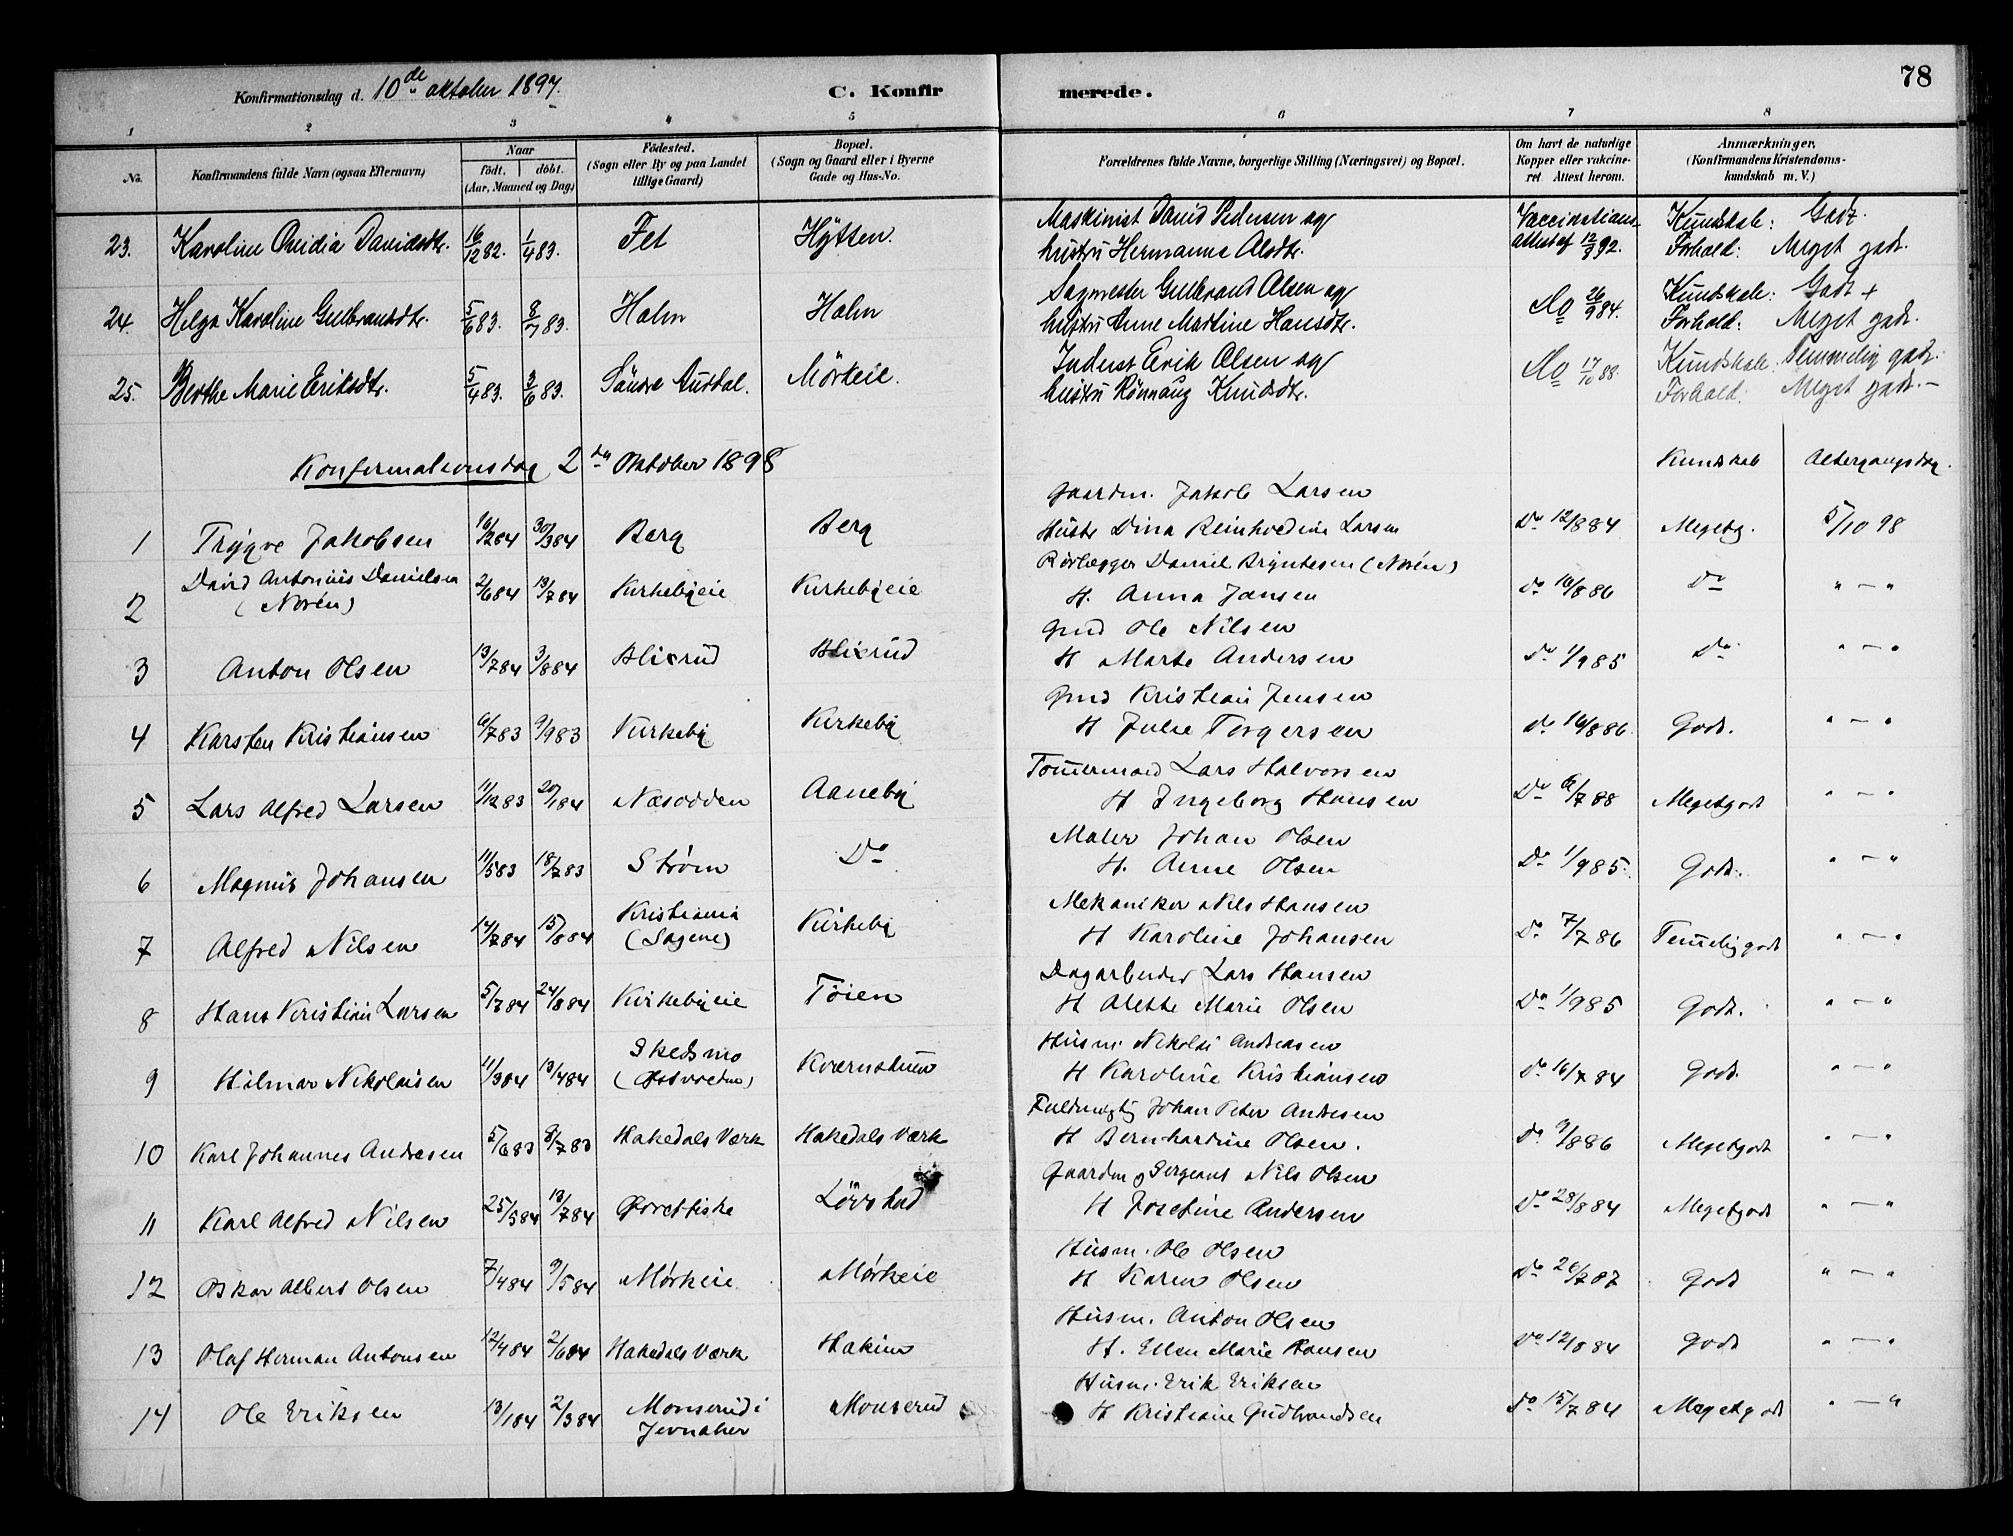 78
Konfirmationsdag d. 10de oktober 1897.
C. Konfirmerede.
1 2 3 4 5 6 7 8
No.
Konfirmandens fulde Navn (ogsaa Efternavn)
Naar
født. døbt.
(Aar, Maaned og Dag)
Födested.
(Sogn eller By og paa Landet
tillige Gaard)
Bopæl.
(Sogn og Gaard eller i Byerne
Gade og Hus-No.
Forældrenes fulde Navne, borgerlige Stilling (Næringsvei) og Bopæl.
Om havt de naturlige
Kopper eller vakcine-
ret Attest herom.
Anmærkninger,
(Konfirmandens Kristendoms-
kundskab m. V.)
23. Karoline Ovidia Davidsdtr. 16/12 82. 1/4 83. Fet Hÿtten. Maskinist David Pedersen og Vaccinations- Kundskab: Godt.
hustru Hermanna Olsdtr. attest af 12/8 92. Forhold: Meget godt.
24. Helga Karoline Gulbrandsdtr. 5/6 83. 8/7 83. Holm Holm Sagmester Gulbrand Olsen og do 26/9 84. Kundskab: Godt +
hustru Anne Martine Hansdtr. Forhold: Meget godt.
25. Berthe Marie Eriksdtr. 5/4 83. 3/6 83. Söndre Aurdal. Mörkeie. Inderst Erik Olsen og do 17/10 88. Kundskab: Temmelig godt.
hustru Rönnaug Knudsdtr. Forhold: Meget godt. –
Konfirmationsdag 2den Oktober 1898 Kundskab Altergangsdag.
Gaardm. Jakob Larsen
1 Trygve Jakobsen 16/2 84 30/3 84 Berg Berg Hustr Dina Reinholdine Larsen Do 12/8 84 Megetg. 5/10 98
David Antonius Danielsen Rørlægger Daniel Bryntesen (Norén)
2 (Norén) 2/6 84 13/7 84 Kirkebyeie Kirkebyeie H. Anna Jansen do 16/8 86 Do " — "
Gmd Ole Nilsen
3 Anton Olsen 13/7 84 3/8 84 Blixrud Blixrud H Marte Andersen Do 1/9 85 Do " — "
Gmd Kristian Jensen
4 Karsten Kristiansen 6/7 83 9/9 83 Kirkeby Kirkeby H Julie Torgersen do 16/8 86 Godt. " — "
Tømermand Lars Halvorsen
5 Lars Alfred Larsen 11/12 83 20/1 84 Næsodden Aaneby H Ingeborg Hansen Do 6/7 88 Megetgodt " — "
Maler Johan Olsen
6 Magnus Johansen 11/5 83 18/7 83 Strøm Do H. Anne Olsen Do 1/9 85 Godt. " — "
Mekaniker Nils Hansen
7 Alfred Nilsen 14/7 84 15/8 84 Kristiania
(Sagene) Kirkeby H Karoline Johansen Do 7/7 86 Temelig godt " — "
Dagarbeider Lars Hansen
8 Hans Kristian Larsen 5/7 84 24/8 84 Kirkebyeie Tøien H Alette Marie Olsen Do 1/9 85 Godt. " — "
Husm. Nikolai Andreasen
9 Hilmar Nikolaisen 11/3 84 13/4 84 Skedsmo Kværnstuen H Karoline Kristiansen do 16/7 84 Godt. " — "
Fuldmægtig Johan Peter Andresen
10 Karl Johannes Andresen 5/6 83 8/7 83 Hakedals Værk Hakedals Værk H Bernhardine Olsen. do 9/8 86 Megetgodt " — "
Gaardm og Sergeant Nils Olsen
11 Karl Alfred Nilsen 25/5 84 13/7 84 Løvstad H Josefine Andersen Do 28/8 84 Megetgodt " — "
Husm. Ole Olsen
12 Oskar Albert Olsen 7/4 84 9/5 84 Mørkeie Mørkeie H Karen Olsen do 26/7 87 Godt " — "
Husm. Anton Olsen
13 Olaf Herman Antonsen 12/4 84 2/6 84 Hakedals Værk Hakim H. Ellen Marie Hansen Do 12/8 84 Godt " — "
Husm. Erik Eriksen
14 Ole Eriksen 13/1 84 2/3 84 Monserud i
Jevnaker Monserud H Kristiane Gudbrandsen do 15/7 84 Megetgodt " — "